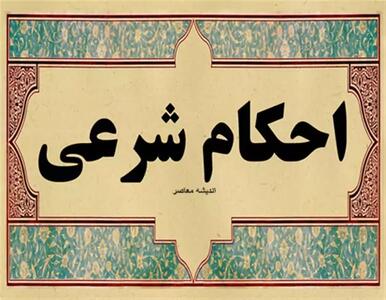 احکام شرعی
اندیشه معاصر